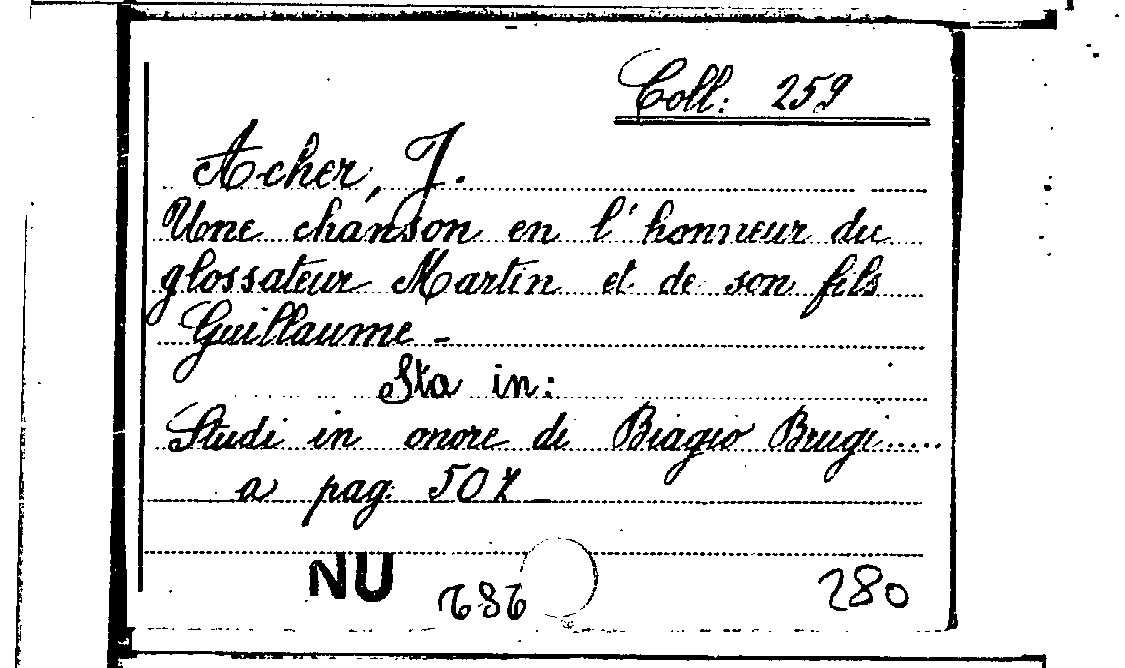 Coll: 259
Acher, J.
Une chanson en l'honneur du
glossateur Martin et de son fils
Guillaume -
Sta in:
Studi in onore di Biagio Brugi.....
a pag. 507
NU 686 280